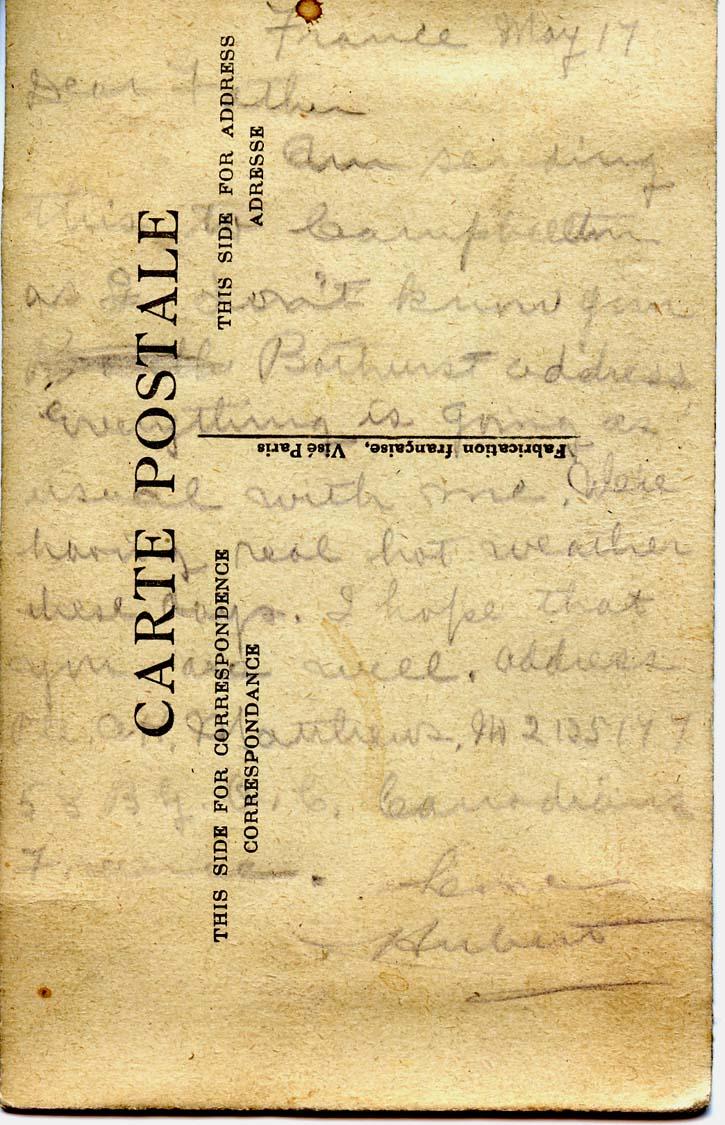 France May 17
Dear Father
Am sending
this to Campbellton
as I don't know your
Bathurst address
everything is going as
usual with me. We're
having real hot weather
these days. I hope that
you are well. address
Pte. Matthews, M 2
Canadians
France.
Love
Hubert
CARTE POSTALE
THIS SIDE FOR CORRESPONDENCE
CORRESPONDANCE
THIS SIDE FOR ADDRESS
ADRESSE
Fabrication française, Visé Paris